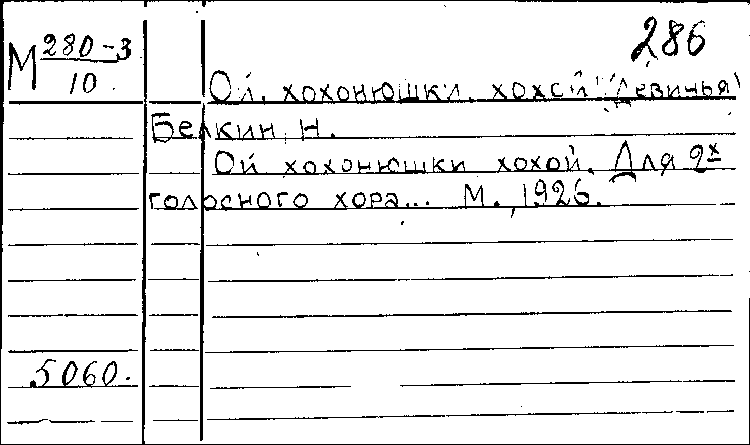 286
М 280-3
10
Ой, хохонюшки, хохой! (Девичья)
Белкин, Н.
Ой хохонюшки хохой. Для 2х
голосного хора... М., 1926.
5060.